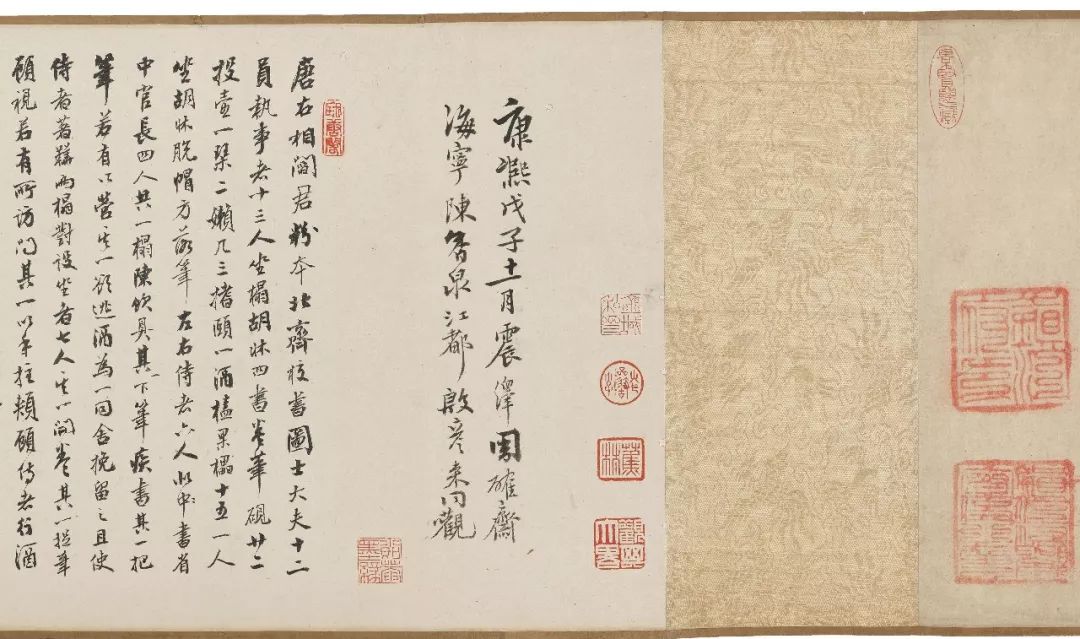 景賢鑒藏
蕉林
觀其大略
康熙戊子十一月震澤周確齋
海寧陳香泉江都殷彥來同觀
唐右相閻君粉本北齊挍書圖士大夫十二
員執事者十三人坐榻胡牀四書卷筆硯廿二
投壺一琹二嬾几三搘頤一酒榼果櫑十五一人
坐胡牀脫帽方落筆左右侍者六人似書省
中官長四人共一榻陳飲具其下筆疾書其一把
筆若有所營其一欲逃酒為一同舍挽留之且使
侍者著鞾兩榻對設坐者七人其一開卷其一捉筆
顧視若有所訪問其一以手拄頰顧侍者行酒